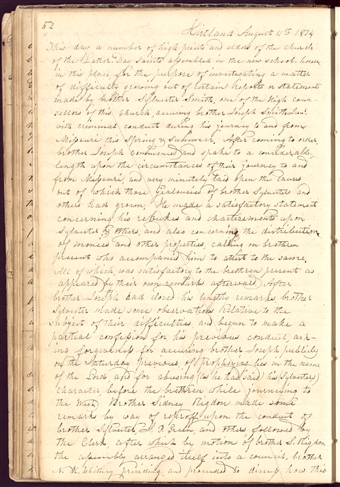 52
Kirtland August 11th 1834
This day a number of high priests and elders of the church
of the Latter Day Saints assembled in the new school house
in this place for the purpose of investigating a matter
of difficulty growing out of certain reports or statements
made by brother Sylvester Smith, one of the high coun-
sellors of this church, accusing brother Joseph Smith
with criminal conduct during his journey to and from
Missouri this Spring & Summer. After coming to order
brother Joseph commenced and spake to a considerable
length upon the circumstances of their journey to and
from Missouri and very minutely laid open the causes
out of which those jealousies of brother Sylvester and
others had grown. He made a satisfactory statement
concerning his rebukes and chastisements upon
Sylvester & others, and also concerning the distribution
of monies and other properties, calling on brethren
present who accompanied him to attest to the same,
all of which was satisfactory to the brethren present as
appeared by their own remarks afterward. After
brother Joseph had closed his lengthy remarks brother
Sylvester made some observations relative to the
subject of their difficulties and began to make a
partial confession for his previous conduct, ask-
ing forgiveness for accusing brother Joseph publicly
on the Saturday previous, of prophesying lies in the name
of the Lord, and for abusing (as he had said) his (Sylvester's)
character before the brethren while journeying to
the West. Brother Sidney Rigdon made some
remarks by way of reproof upon the conduct of
brother Sylvester, and others followed by
the Clerk after which by motion of brother S. Rigdon
the assembly arranged itself into a council, brother
N. K. Whitney presiding and proceeded to how this